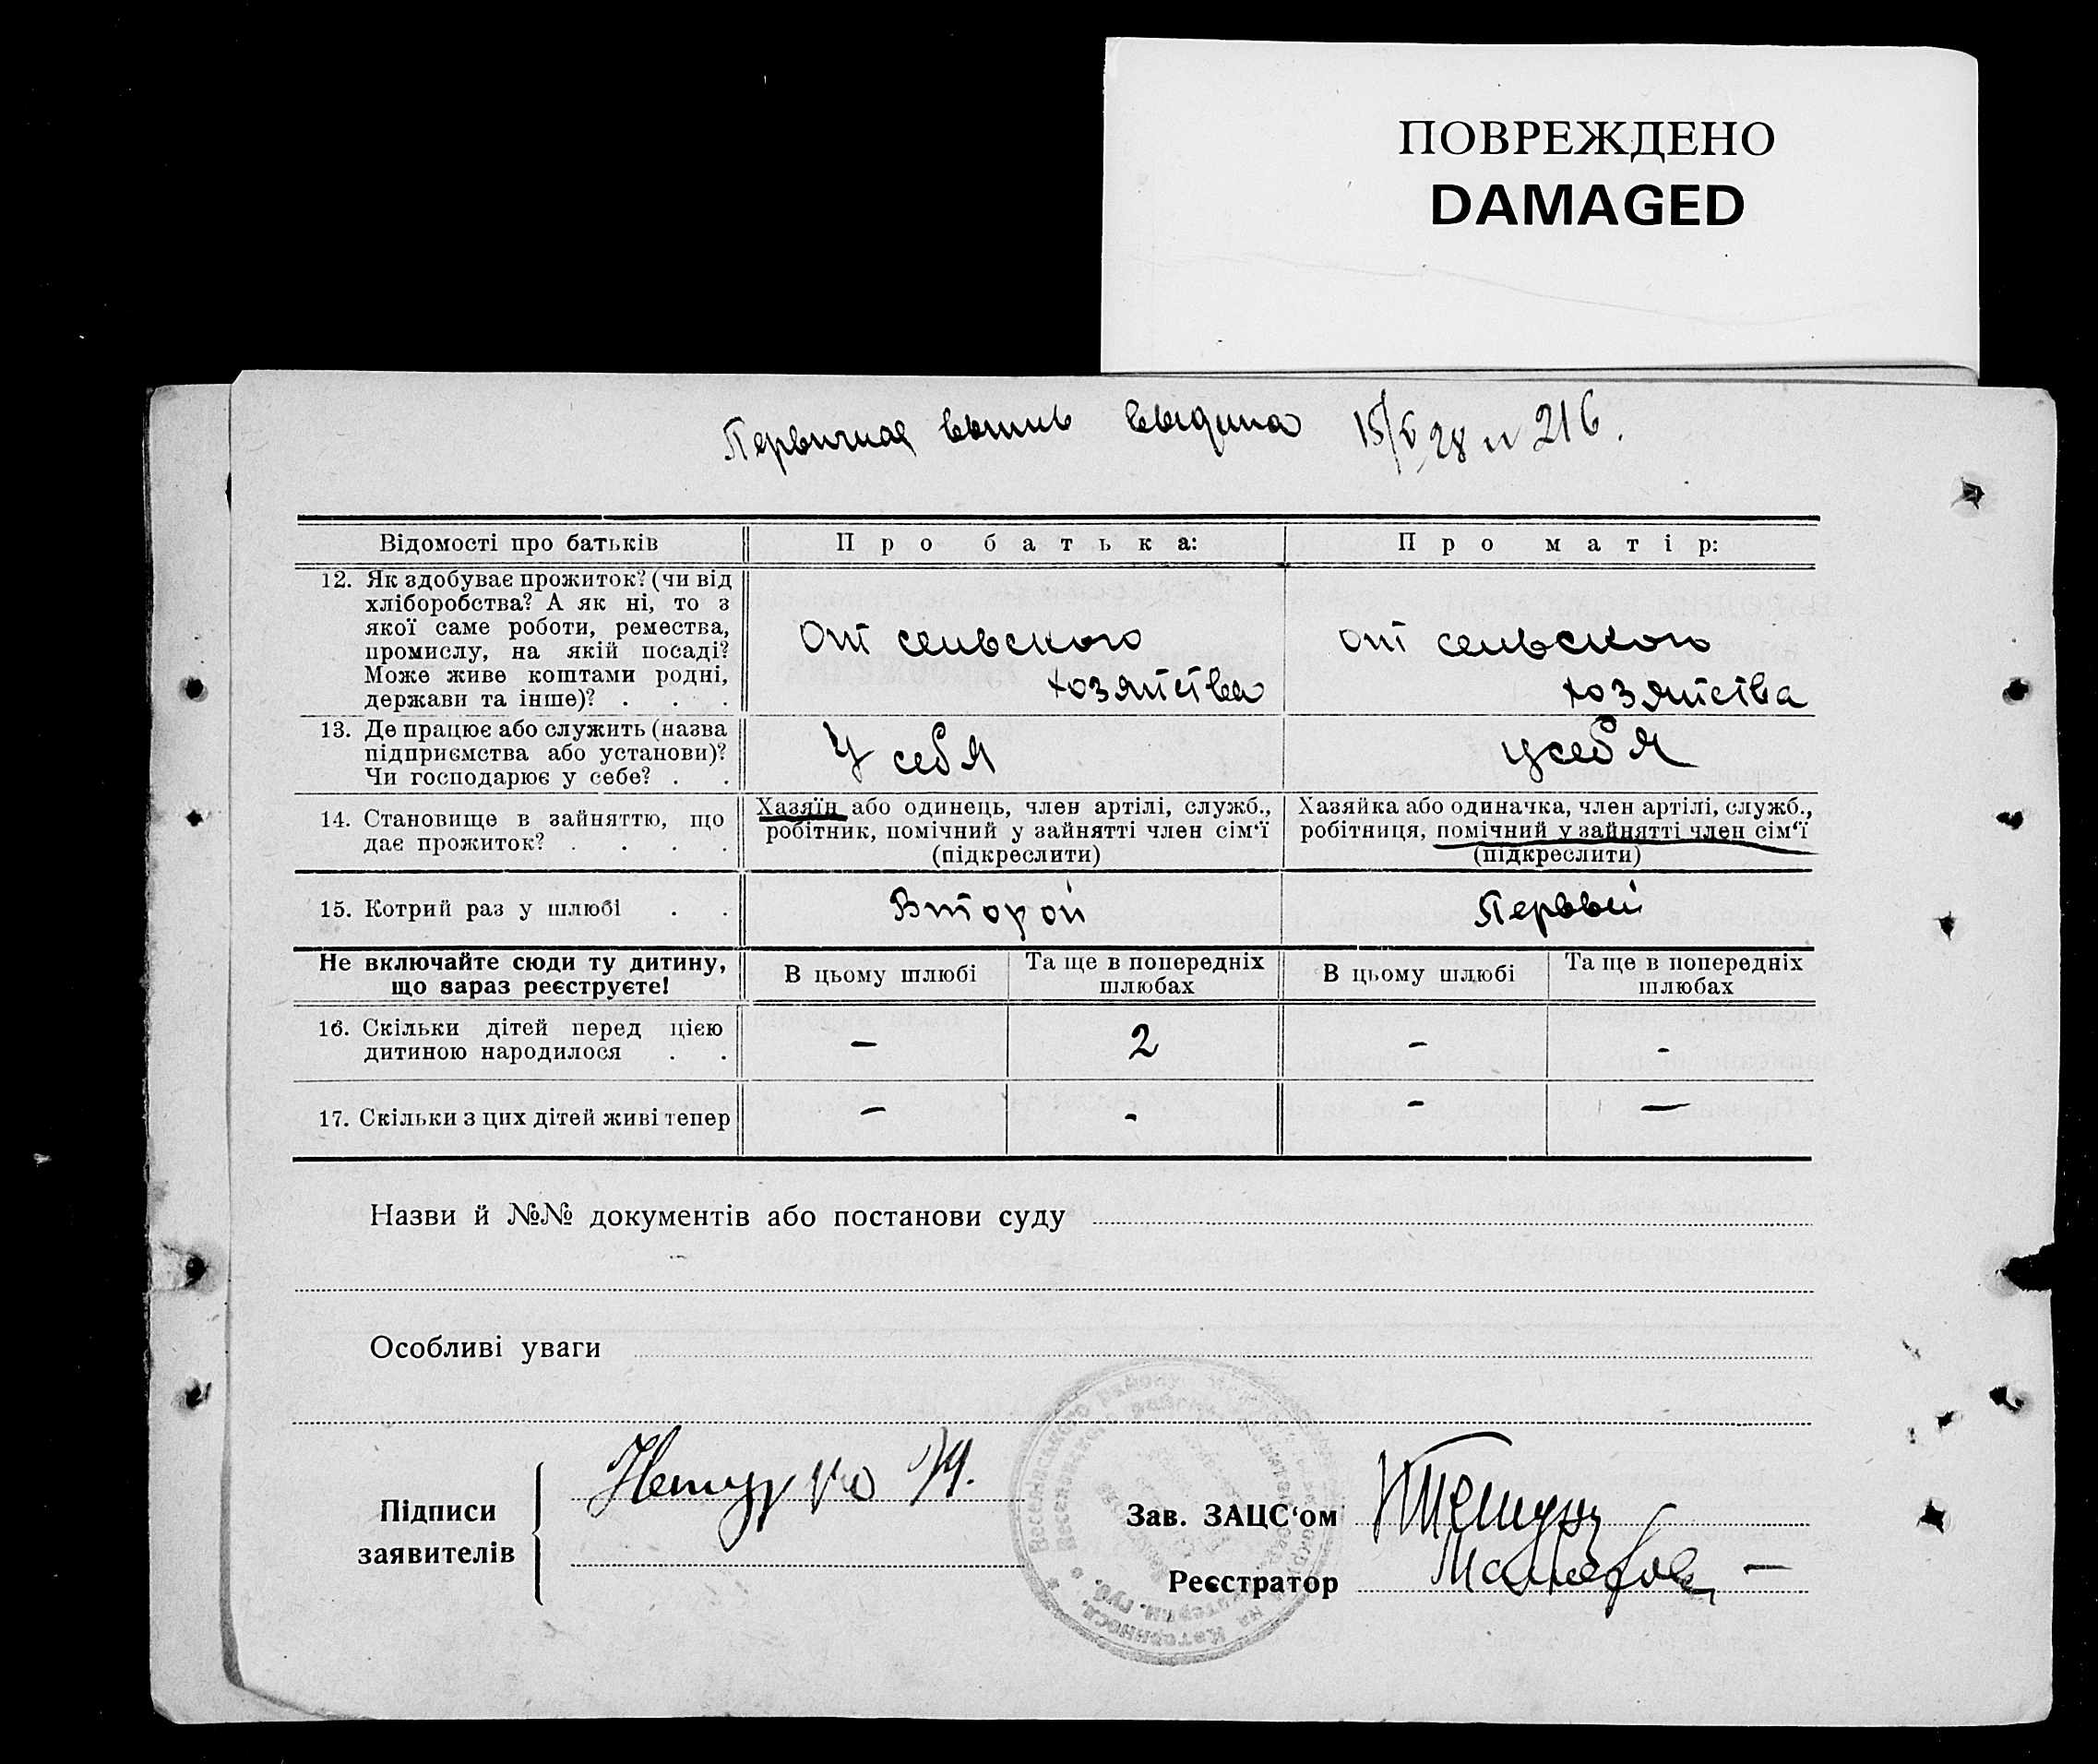 ПОВРЕЖДЕНО
DAMAGED
Первичная выпись выдана 15/V 28 N 216.
Відомості про батьків
Про батька:
Про матір:
12. Як здобуває прожиток? (чи від
хліборобства? А як ні, то з
якої саме роботи, ремества,
промислу, на якій посаді?
Може живе коштами родні,
держави та інше)? . . .
От сельского
хозяйства
от сельского
хозяйства
13. Де працює або служить (назва
підприємства або установи)?
Чи господарює у себе? . .
У себя
у себя
14. Становище в зайняттю, що
дає прожиток? . . . .
Хазяїн або одинець, член артілі, служб.,
робітник, помічний у зайнятті член сім'ї
(підкреслити)
Хазяйка або одиначка, член артілі, служб.,
робітниця, помічний у зайнятті член сім'ї
(підкреслити)
15. Котрий раз у шлюбі . .
Второй
Первый
Не включайте сюди ту дитину,
що зараз реєструєте!
В цьому шлюбі
Та ще в попередніх
шлюбах
В цьому шлюбі
Та ще в попередніх
шлюбах
16. Скільки дітей перед цією
дитиною народилося . .
–
2
–
-
17. Скільки з цих дітей живі тепер
–
-
–
—
Назви й №№ документів або постанови суду
Особливі уваги
Підписи
заявителів
Зав. ЗАЦС'ом
Реєстратор